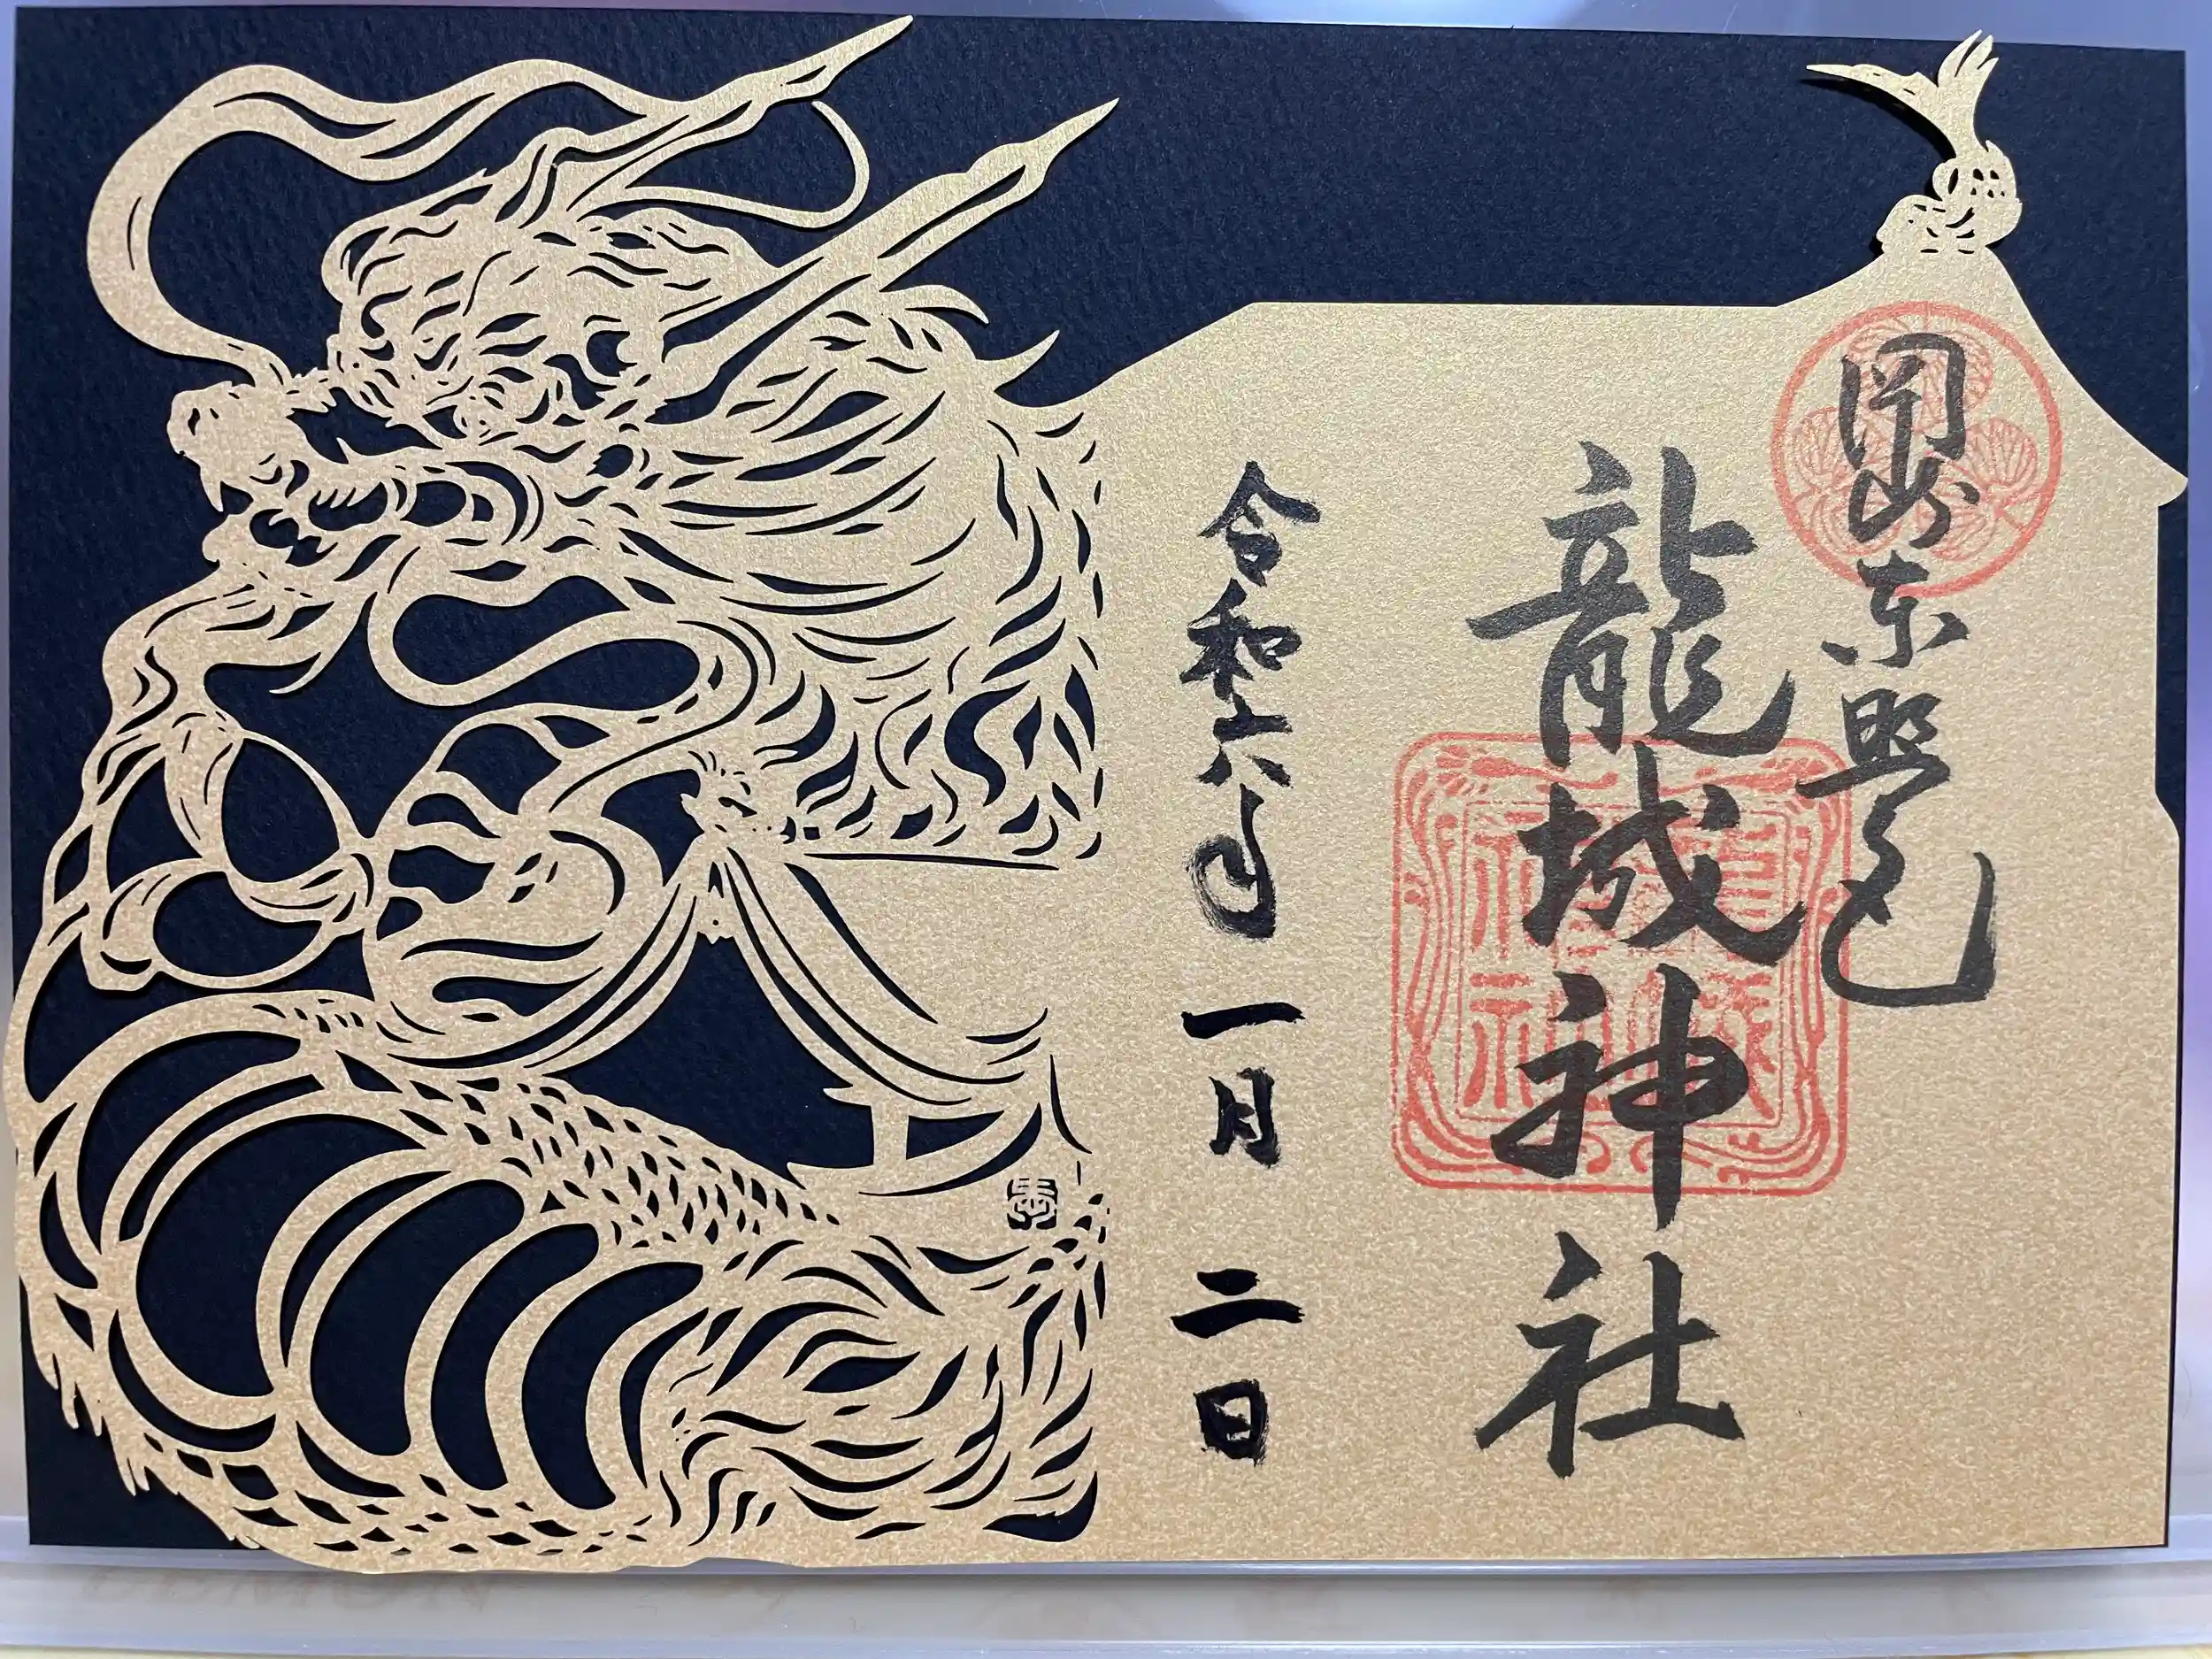 岡崎東照宮
龍城神社
令和六年 一月 二日